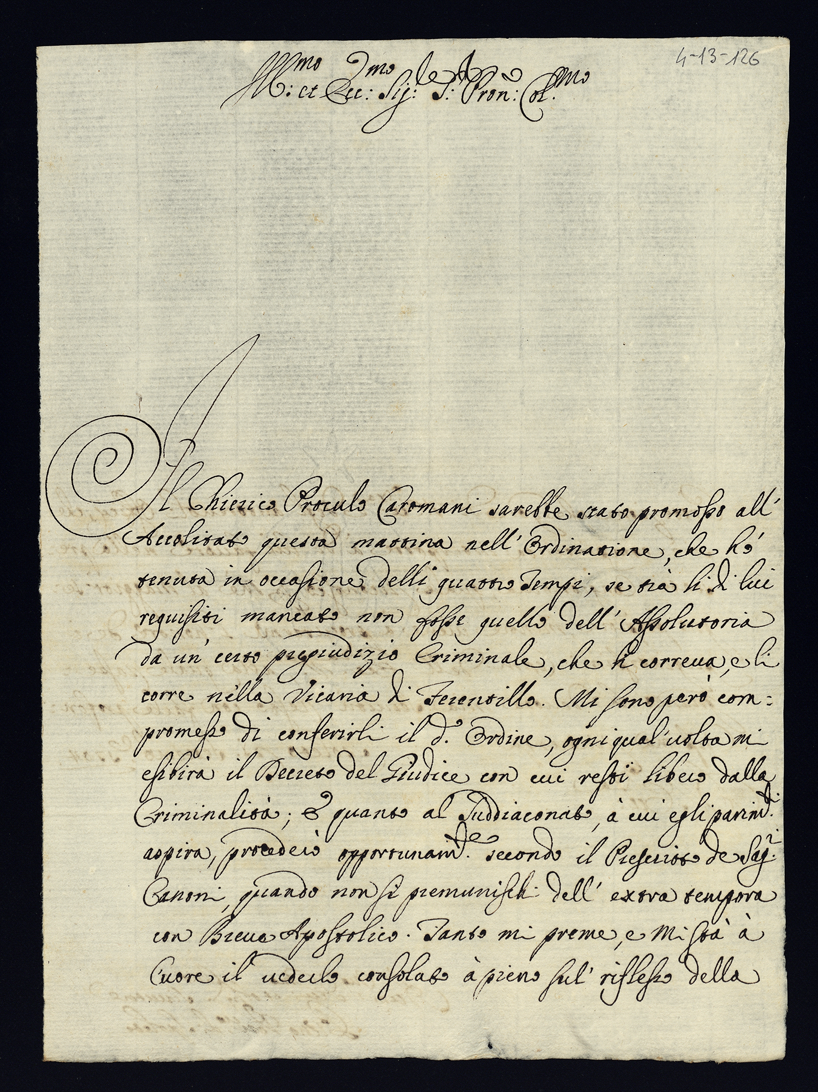 4-13-126
Ill:mo et Ecc:mo Sig:re S:r Pron: Col:mo
Il Chierico Proculo Caromani sarebbe stato promosso all'
Accolitato questa mattina nell' Ordinatione, che hò
tenuta in occasione delli quattro Tempi, se trà li di lui
requisiti mancato non fosse quello dell' Assolutoria
da un' certo pregiudizio Criminale, che li correua, e li
corre nella Vicaria di Ferentillo. Mi sono però com=
promesso di conferirli il d.o Ordine, ogni qual' uolta mi
esibirà il Decreto del Giudice con cui resti libero dalla
Criminalità; & quanto al Suddiaconato, à cui egli parim.te
aspira, procederò opportunam.te secondo il Prescritto de Sag.ri
Canoni, quando non si premunischi dell' extra tempora
con Breue Apostolico. Tanto mi preme, e Mi stà à
Cuore il uederlo consolato à pieno sul' riflesso della